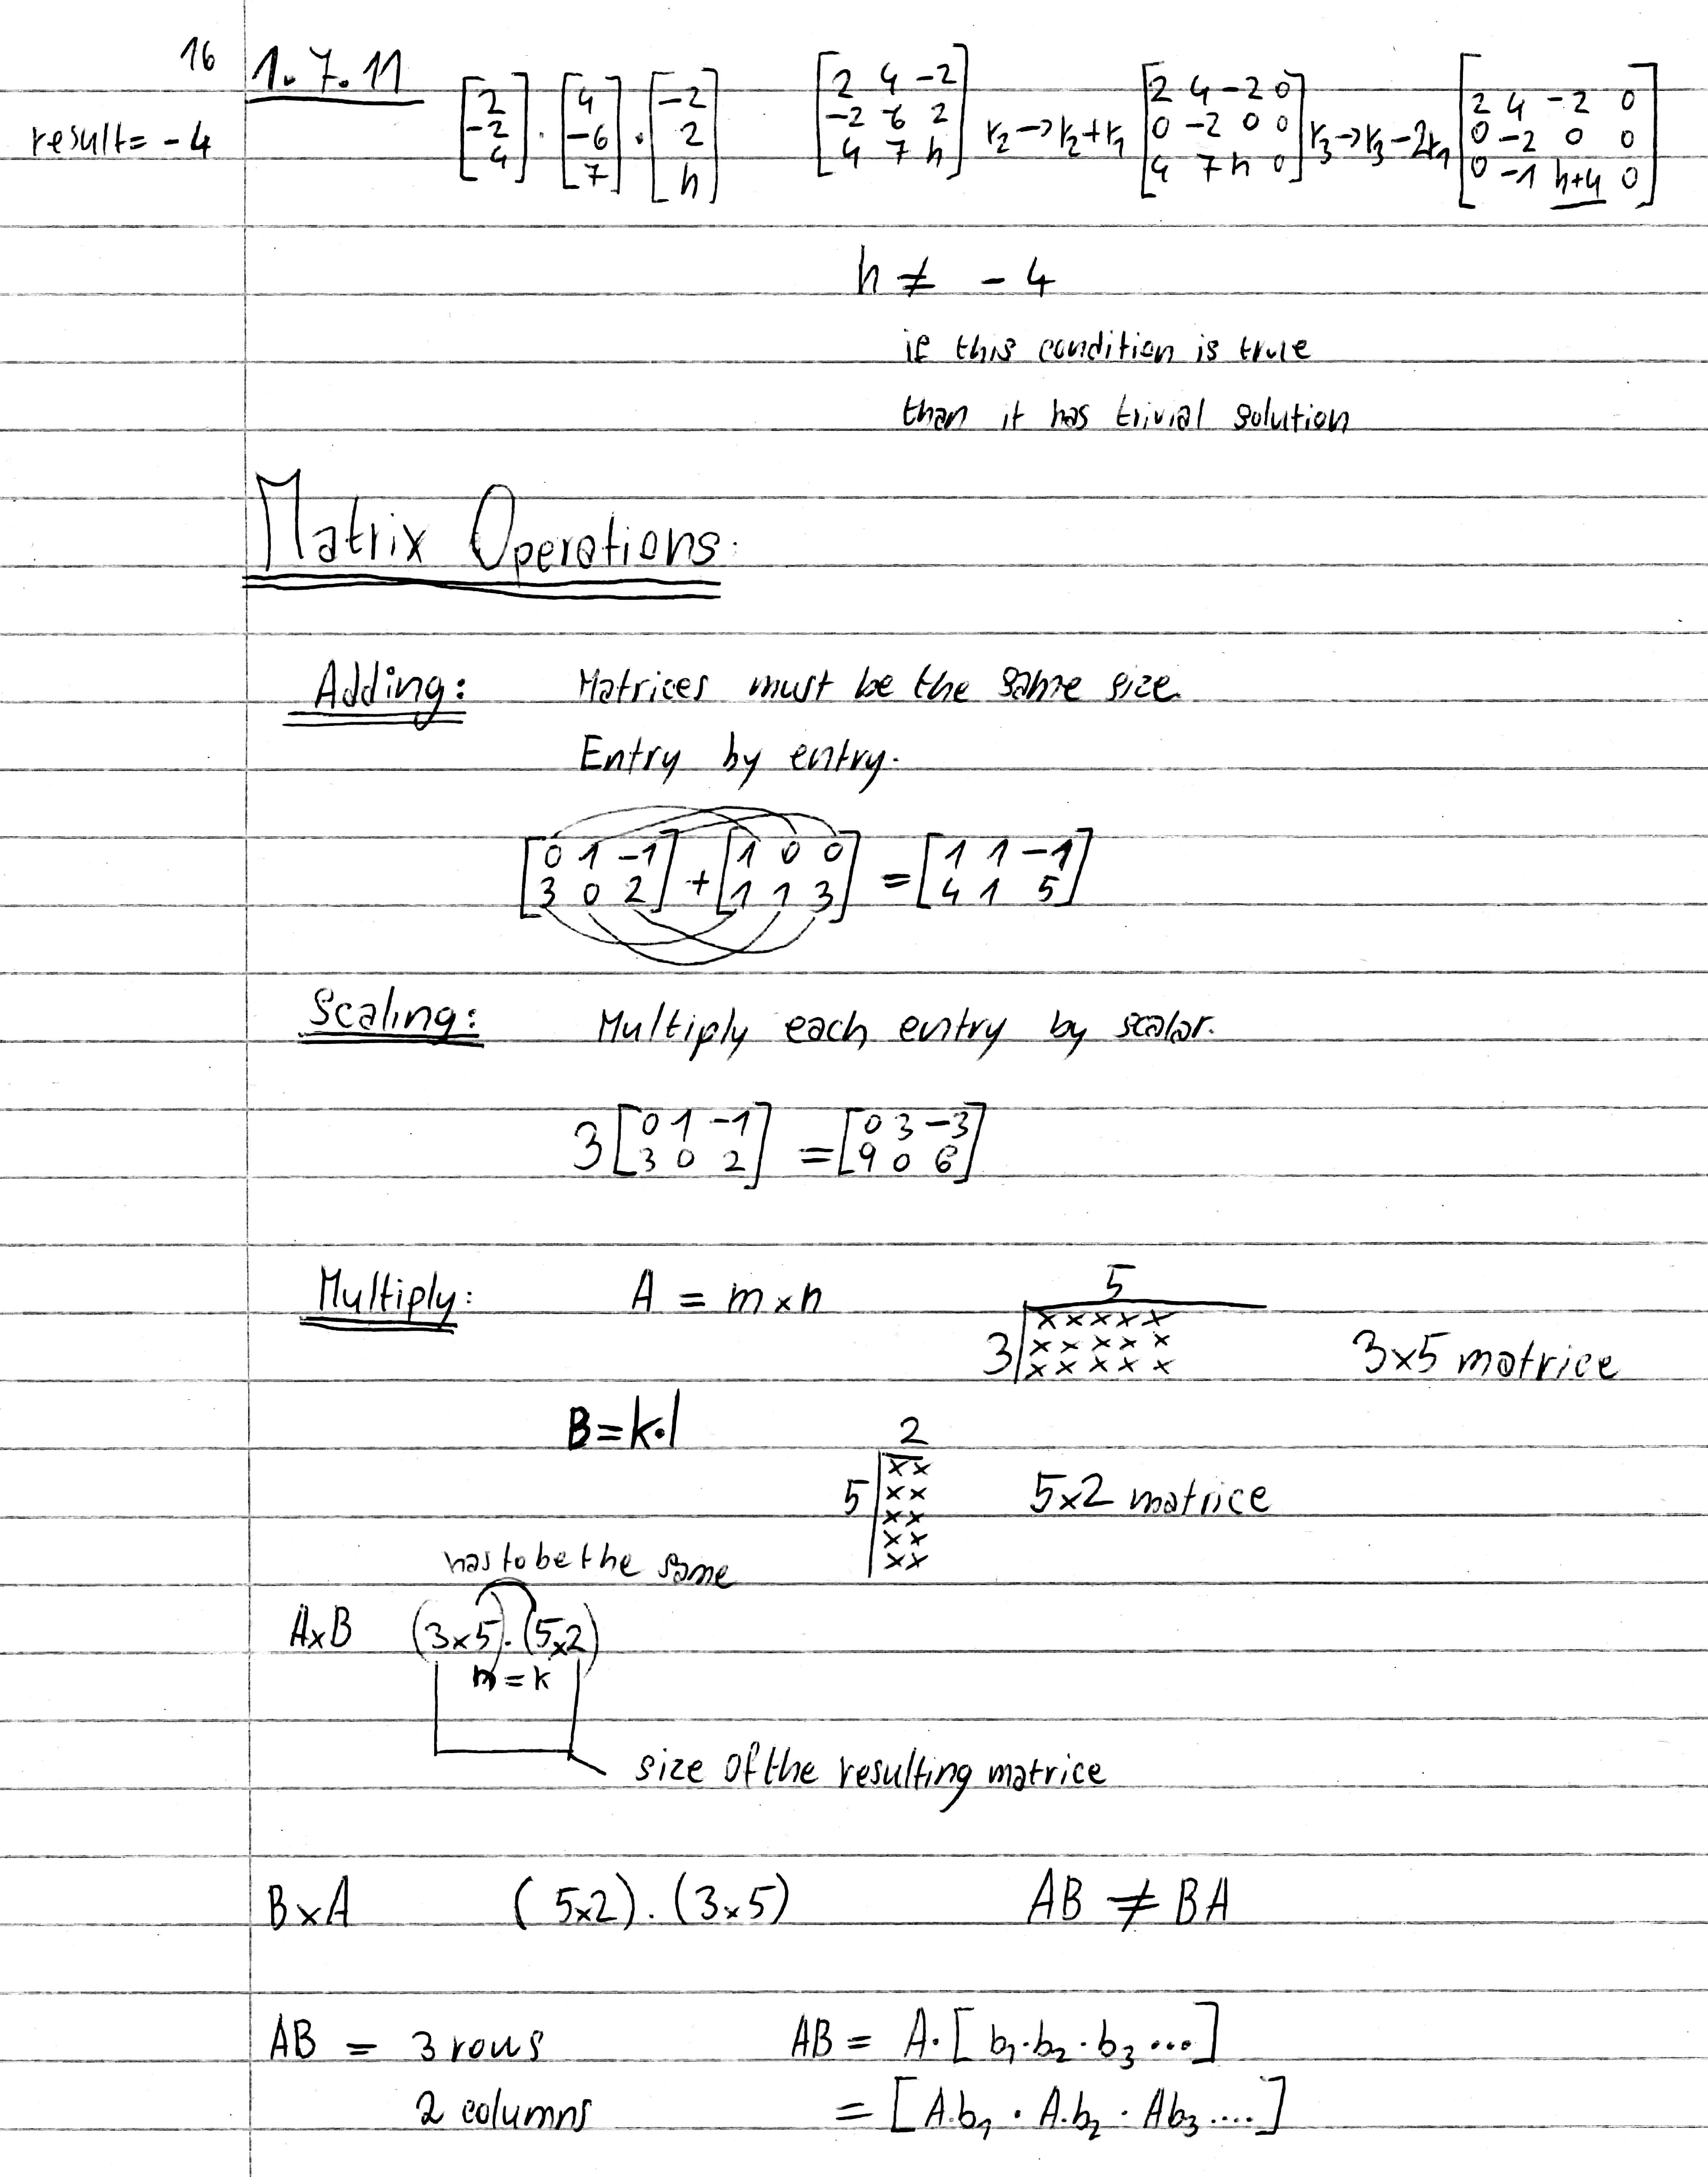 16 1.7.11
result= -4
[2 -2 4] · [4 -6 7] · [-2 2 h]
[2 4 -2
-2 6 2
4 7 h] r₂→r₂+r₁ [2 4 -2 0
0 -2 0 0
4 7 h 0] r₃→r₃-2r₁ [2 4 -2 0
0 -2 0 0
0 -1 h+4 0]
h ≠ -4
if this condition is true
than it has trivial solution
Matrix Operations:
Adding: Matrices must be the same size.
Entry by entry.
[0 1 -1
3 0 2] + [1 0 0
1 1 3] = [1 1 -1
4 1 5]
Scaling: Multiply each entry by scalar.
3 [0 1 -1
3 0 2] = [0 3 -3
9 0 6]
Multiply: A = m×n
5
3 x x x x x
x x x x x
x x x x x
3×5 matrice
B=k·l
2
5 x x
x x
x x
x x
x x
5×2 matrice
has to be the same
A×B (3×5)·(5×2)
= k
size of the resulting matrice
B×A (5×2).(3×5) AB ≠ BA
AB = 3 rows AB = A·[b₁·b₂·b₃ ...]
2 columns = [A.b₁ · A.b₂ · Ab₃ ....]